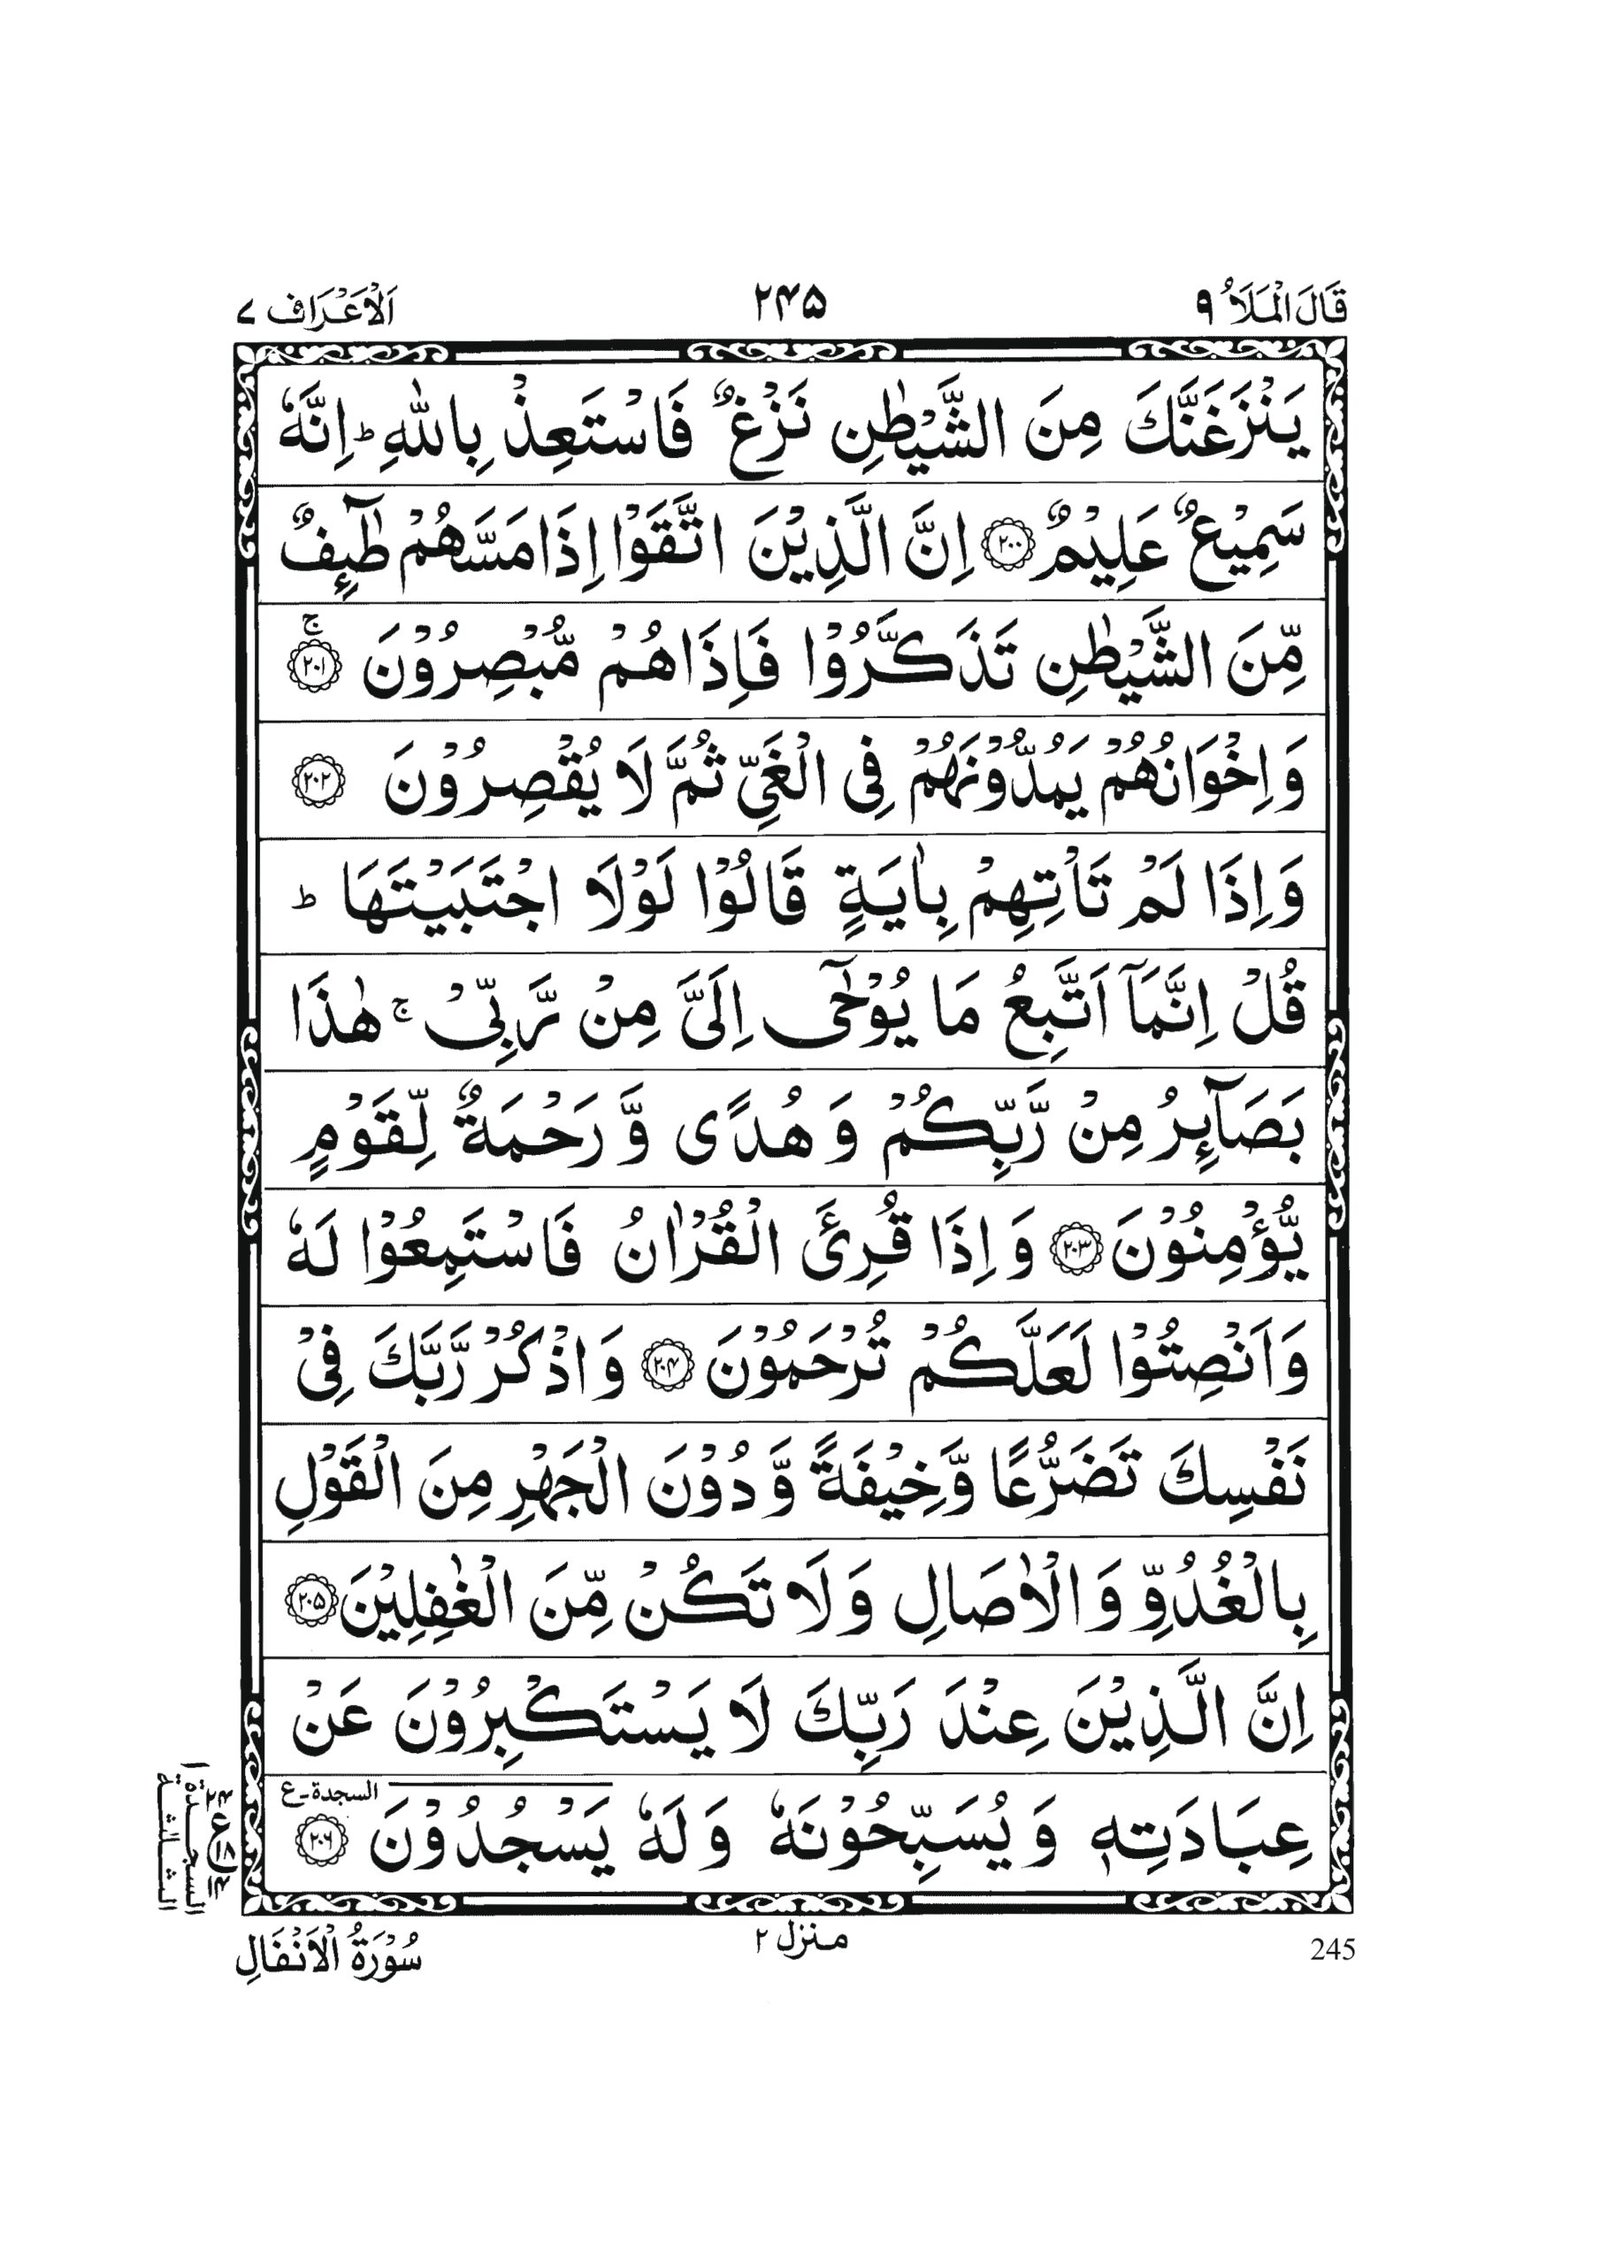 قَالَ الْمَلَاُ ٩
٢٤٥
اَلْاَعْرَاف ٧
يَنْزَغَنَّكَ مِنَ الشَّيْطٰنِ نَزْغٌ فَاسْتَعِذْ بِاللّٰهِ ؕ اِنَّهٗ
سَمِيْعٌ عَلِيْمٌ ﴿٢٠٠﴾ اِنَّ الَّذِيْنَ اتَّقَوْا اِذَا مَسَّهُمْ طٰٓئِفٌ
مِّنَ الشَّيْطٰنِ تَذَكَّرُوْا فَاِذَا هُمْ مُّبْصِرُوْنَ ﴿٢٠١﴾ ۚ
وَاِخْوَانُهُمْ يَمُدُّوْنَهُمْ فِى الْغَىِّ ثُمَّ لَا يُقْصِرُوْنَ ﴿٢٠٢﴾
وَاِذَا لَمْ تَاْتِهِمْ بِاٰيَةٍ قَالُوْا لَوْلَا اجْتَبَيْتَهَا ؕ
قُلْ اِنَّمَآ اَتَّبِعُ مَا يُوْحٰٓى اِلَىَّ مِنْ رَّبِّىْ ۚ هٰذَا
بَصَآئِرُ مِنْ رَّبِّكُمْ وَ هُدًى وَّ رَحْمَةٌ لِّقَوْمٍ
يُّؤْمِنُوْنَ ﴿٢٠٣﴾ وَ اِذَا قُرِئَ الْقُرْاٰنُ فَاسْتَمِعُوْا لَهٗ
وَاَنْصِتُوْا لَعَلَّكُمْ تُرْحَمُوْنَ ﴿٢٠٤﴾ وَ اذْكُرْ رَّبَّكَ فِىْ
نَفْسِكَ تَضَرُّعًا وَّخِيْفَةً وَّ دُوْنَ الْجَهْرِ مِنَ الْقَوْلِ
بِالْغُدُوِّ وَ الْاٰصَالِ وَ لَا تَكُنْ مِّنَ الْغٰفِلِيْنَ ﴿٢٠٥﴾
اِنَّ الَّذِيْنَ عِنْدَ رَبِّكَ لَا يَسْتَكْبِرُوْنَ عَنْ
السجدة-ع
عِبَادَتِهٖ وَ يُسَبِّحُوْنَهٗ وَ لَهٗ يَسْجُدُوْنَ ﴿٢٠٦﴾
السجدة ١
الثالثة
245
منزل ٢
سُوْرَةُ الْاَنْفَالِ